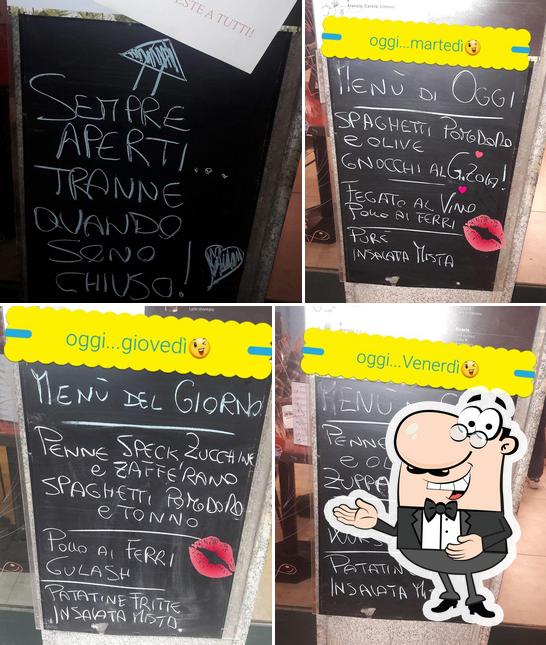 ESTE A TUTTI!
SEMPRE
APERTI...
TRANNE
QUANDO
SONO
CHIUSO!
oggi...martedì
MENÙ DI OGGI
SPAGHETTI POMODORO
E OLIVE
GNOCCHI AL
FEGATO AL VINO
POLLO AI FERRI
PURÈ
INSALATA MISTA
oggi...giovedì
MENÙ DEL GIORNO
PENNE SPECK ZUCCHINE
E ZAFFERANO
SPAGHETTI POMODORO
E TONNO
POLLO AI FERRI
GULASH
PATATINE FRITTE
INSALATA MISTA
oggi...Venerdì
MENÙ
PENNE
E OL
ZUPPA
PATATIN
INSALATA M